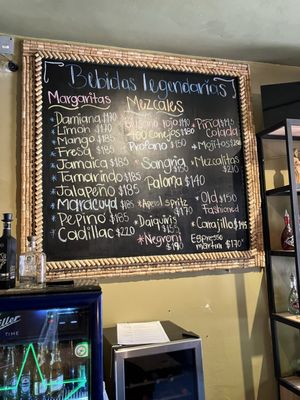 Bebidas legendarias
Margaritas
*Damiana $190
*Limon $170
*Mango $185
*Fresa $185
*Jamaica $185
*Tamarindo $185
*Jalapeño $185
Maracuya $185
*Pepino $185
*Cadillac $220
Mezcales
rojo $140
400 Conejos $180
Profano $150
*Sangria $150
Paloma $140
*Aperol Spritz $170
*Daiquiris $155
*Negroni $190
*Piña Colada $140
*Mojitos $140
*Mezcalitos $210
*Old fashioned $150
*Carajillo $195
Espresso martini $170
Miller
TIME